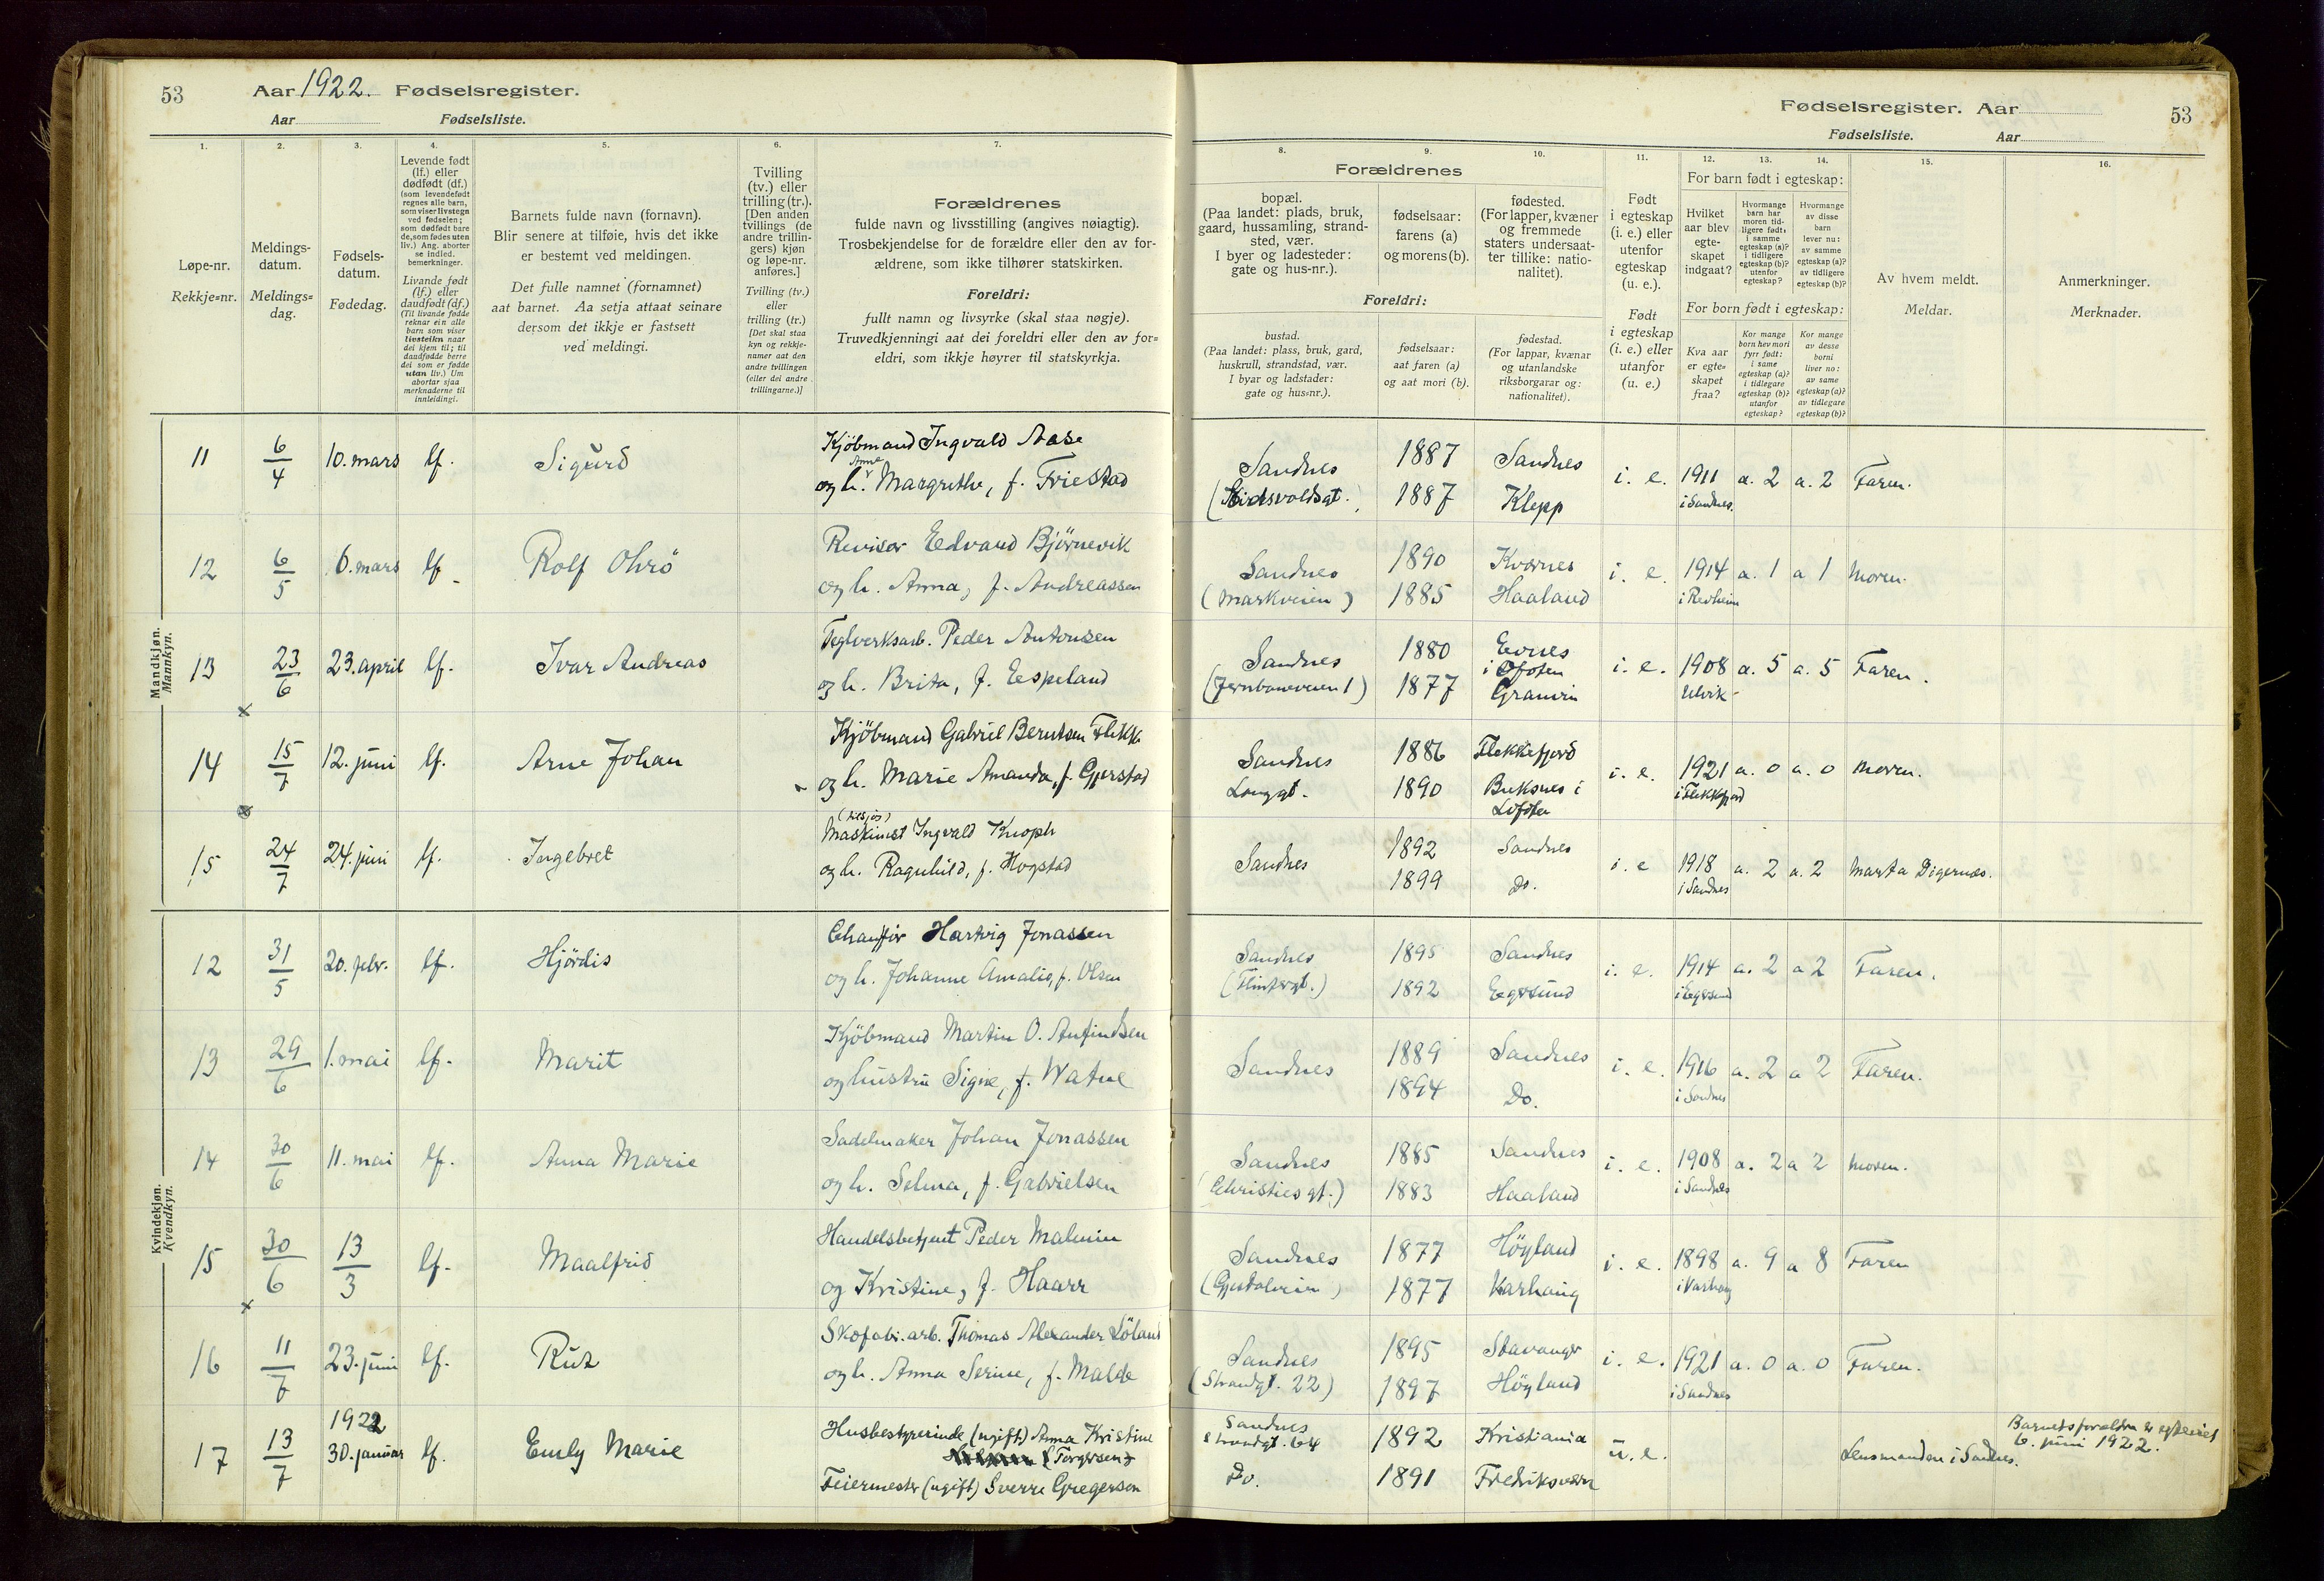 53 Aar 1922. Fødselsregister.
Aar Fødselsliste.
Fødselsregister. Aar 53
Fødselsliste. Aar
1. 2. 3. 4. 5. 6. 7.
8. 9. 10. 11. 12. 13. 14. 15. 16.
Løpe-nr.
Rekkje=nr.
Meldings-
datum.
Meldings=
dag.
Fødsels-
datum.
Fødedag.
Levende født
(lf.) eller
dødfødt (df.)
(som levendefødt
regnes alle barn,
som viser livstegn
ved fødselen;
som dødfødt bare
de, som fødes uten
liv.) Ang. aborter
se indled.
bemerkninger.
Livande født
(lf.) eller
daudfødt (df.)
(Til livande fødde
reknar ein alle
barn som viser
livsteikn naar
dei kjem til; til
daudfødde berre
dei som er fødde
utan liv.) Um
abortar sjaa
merknaderne til
innleidingi.
Barnets fulde navn (fornavn).
Blir senere at tilføie, hvis det ikke
er bestemt ved meldingen.
Det fulle namnet (fornamnet)
aat barnet. Aa setja attaat seinare
dersom det ikkje er fastsett
ved meldingi.
Tvilling
(tv.) eller
trilling (tr.).
[Den anden
tvillings (de
andre trillin-
gers) kjøn
og løpe-nr.
anføres.]
Tvilling (tv.)
eller
trilling (tr.)
[Det skal staa
kyn og rekkje-
numer aat den
andre tvillingen
(eller dei andre
trillingarne.)]
Forældrenes
fulde navn og livsstilling (angives nøiagtig).
Trosbekjendelse for de forældre eller den av for-
ældrene, som ikke tilhører statskirken.
Foreldri:
fullt namn og livsyrke (skal staa nøgje).
Truvedkjenningi aat dei foreldri eller den av for=
eldri, som ikkje høyrer til statskyrkja.
Forældrenes
bopæl.
(Paa landet: plads, bruk,
gaard, hussamling, strand-
sted, vær.
I byer og ladesteder:
gate og hus-nr.).
fødselsaar:
farens (a)
og morens (b).
fødested.
(For lapper, kvæner
og fremmede
staters undersaat-
ter tillike: natio-
nalitet).
Foreldri:
bustad.
(Paa landet: plass, bruk, gard,
huskrull, strandstad, vær.
I byar og ladstader:
gate og hus=nr.).
fødselsaar:
aat faren (a)
og aat mori (b).
fødestad.
(For lappar, kvænar
og utanlandske
riksborgarar og:
nationalitet).
Født
i egteskap
(i. e.) eller
utenfor
egteskap
(u. e.).
Født
i egteskap
(i. e.) eller
utanfor
(u. e.)
For barn født i egteskap:
Hvilket
aar blev
egte-
skapet
indgaat?
Hvormange
barn har
moren tid-
ligere født:
i samme
egteskap (a)?
i tidligere
egteskap (b)?
utenfor
egteskap?
Hvormange
av disse
barn
lever nu:
av samme
egteskap (a)?
av tidligere
egteskap (b)?
For born født i egteskap:
Kva aar
er egte=
skapet
fraa?
Kor mange
born hev mori
fyrr født:
i same
egteskap (a)?
i tidlegare
egteskap (b)?
utanfor
egteskap?
Kor mange
av desse
borni
liver no:
av same
egteskap (a)?
av tidlegare
egteskap (b)?
Av hvem meldt.
Meldar.
Anmerkninger.
Merknader.
Mandkjøn.
Mannkyn.
11 6/4 10. mars lf. Sigurd Kjöbmand Ingvald Aase Sandnes 1887 Sandnes i. e. 1911 a. 2 a. 2 Faren.
og h. Anne Margrethe, f. Friestad (Eidsvoldsgt.) 1887 Klepp i Sandnes.
12 6/5 6. mars lf. Rolf Ohrö Revisor Edvard Björnevik Sandnes 1890 Kvernes i. e. 1914 a. 1 a 1 Moren.
og h. Anna, f. Andreassen (Markveien) 1885 Haaland i Revheim
13 23/6 23. april lf. Ivar Andreas Teglverksarb. Peder Antonsen Sandnes 1880 Evnes i Ofoten i. e. 1908 a. 5 a. 5 Faren.
og h. Brita, f. Espeland (Jernbaneveien 1) 1877 Granvin Ulvik
14 15/7 12. juni lf. Arne Johan Kjöbmand Gabriel Berntsen Flikk Sandnes 1886 Flekkefjord i. e. 1921 a. 0 a. 0 Moren.
og h. Marie Amanda, f. Gjerstad Langgt. 1890 Buksnes i Lofoten i Flekkfjord
15 24/7 24. juni lf. Ingebret Maskinist (tilsjös) Ingvald Knoph Sandnes 1892 Sandnes i. e 1918 a. 2 a. 2 Marta Digernes.
og h. Ragnhild, f. Hogstad 1899 Do. i Sandnes
Kvindekjøn.
Kvendkyn.
12 31/5 20. febr. lf. Hjördis Chauffør Hartvig Jonassen Sandnes 1895 Sandnes i. e. 1914 a. 2 a 2 Faren.
og h. Johanne Amalie, f. Olsen 1892 Egersund i Egersund
13 29/6 1. mai lf. Marit Kjöbmand Martin O. Anfindsen Sandnes 1889 Sandnes i. e. 1916 a. 2 a 2 Faren.
og hustru Signe, f. Watne 1894 Do. i Sandnes
14 30/6 11. mai lf. Anna Marie Sadelmaker Johan Jonassen Sandnes 1885 Sandnes i. e. 1908 a. 2 a 2 Moren.
og h. Selma, f. Gabrielsen (Christies gt.) 1883 Haaland i Sandnes
15 30/6 13/3 lf. Maalfrid Handelsbetjent Peder Malmin Sandnes 1877 Höyland i. e. 1898 a. 9 a 8 Faren
og Kristine, f. Haarr 1877 Varhaug i Varhaug
16 11/7 23. juni lf. Rut Skofabr. arb. Thomas Alexander Löland Sandnes 1895 Stavanger i. e. 1921 a. 0 a. 0 Faren.
og h. Anna Serine, f. Malde (Strandgt. 22) 1897 Höyland i Sandnes
17 13/7 1922 30. januar lf. Emly Marie Husbestyrerinde (ugift) Anna Kristine Torgersen Sandnes Strandgt. 64 1892 Kristiania u. e. Lensmanden i Sandnes. Barnets foreldre er egteviet 6. juni 1922.
Feiermester (ugift) Sverre Gregersen Do. 1891 Fredriksværn